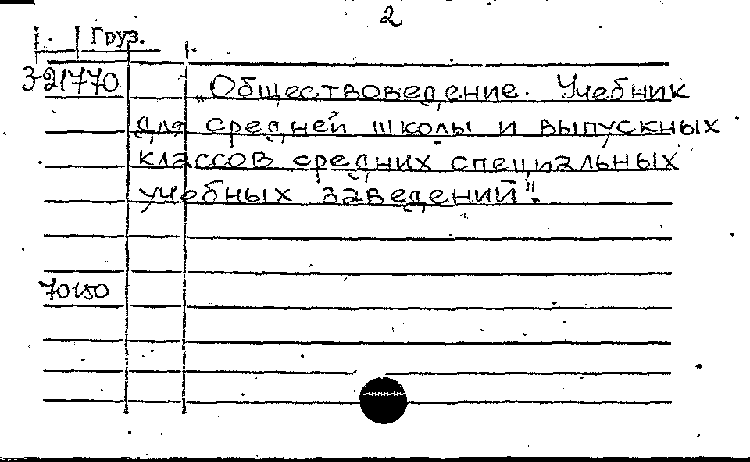 2
Груз.
3-21770
„Обществоведение. Учебник
для средней школы и выпускных
классов средних специальных
учебных заведений".
70150